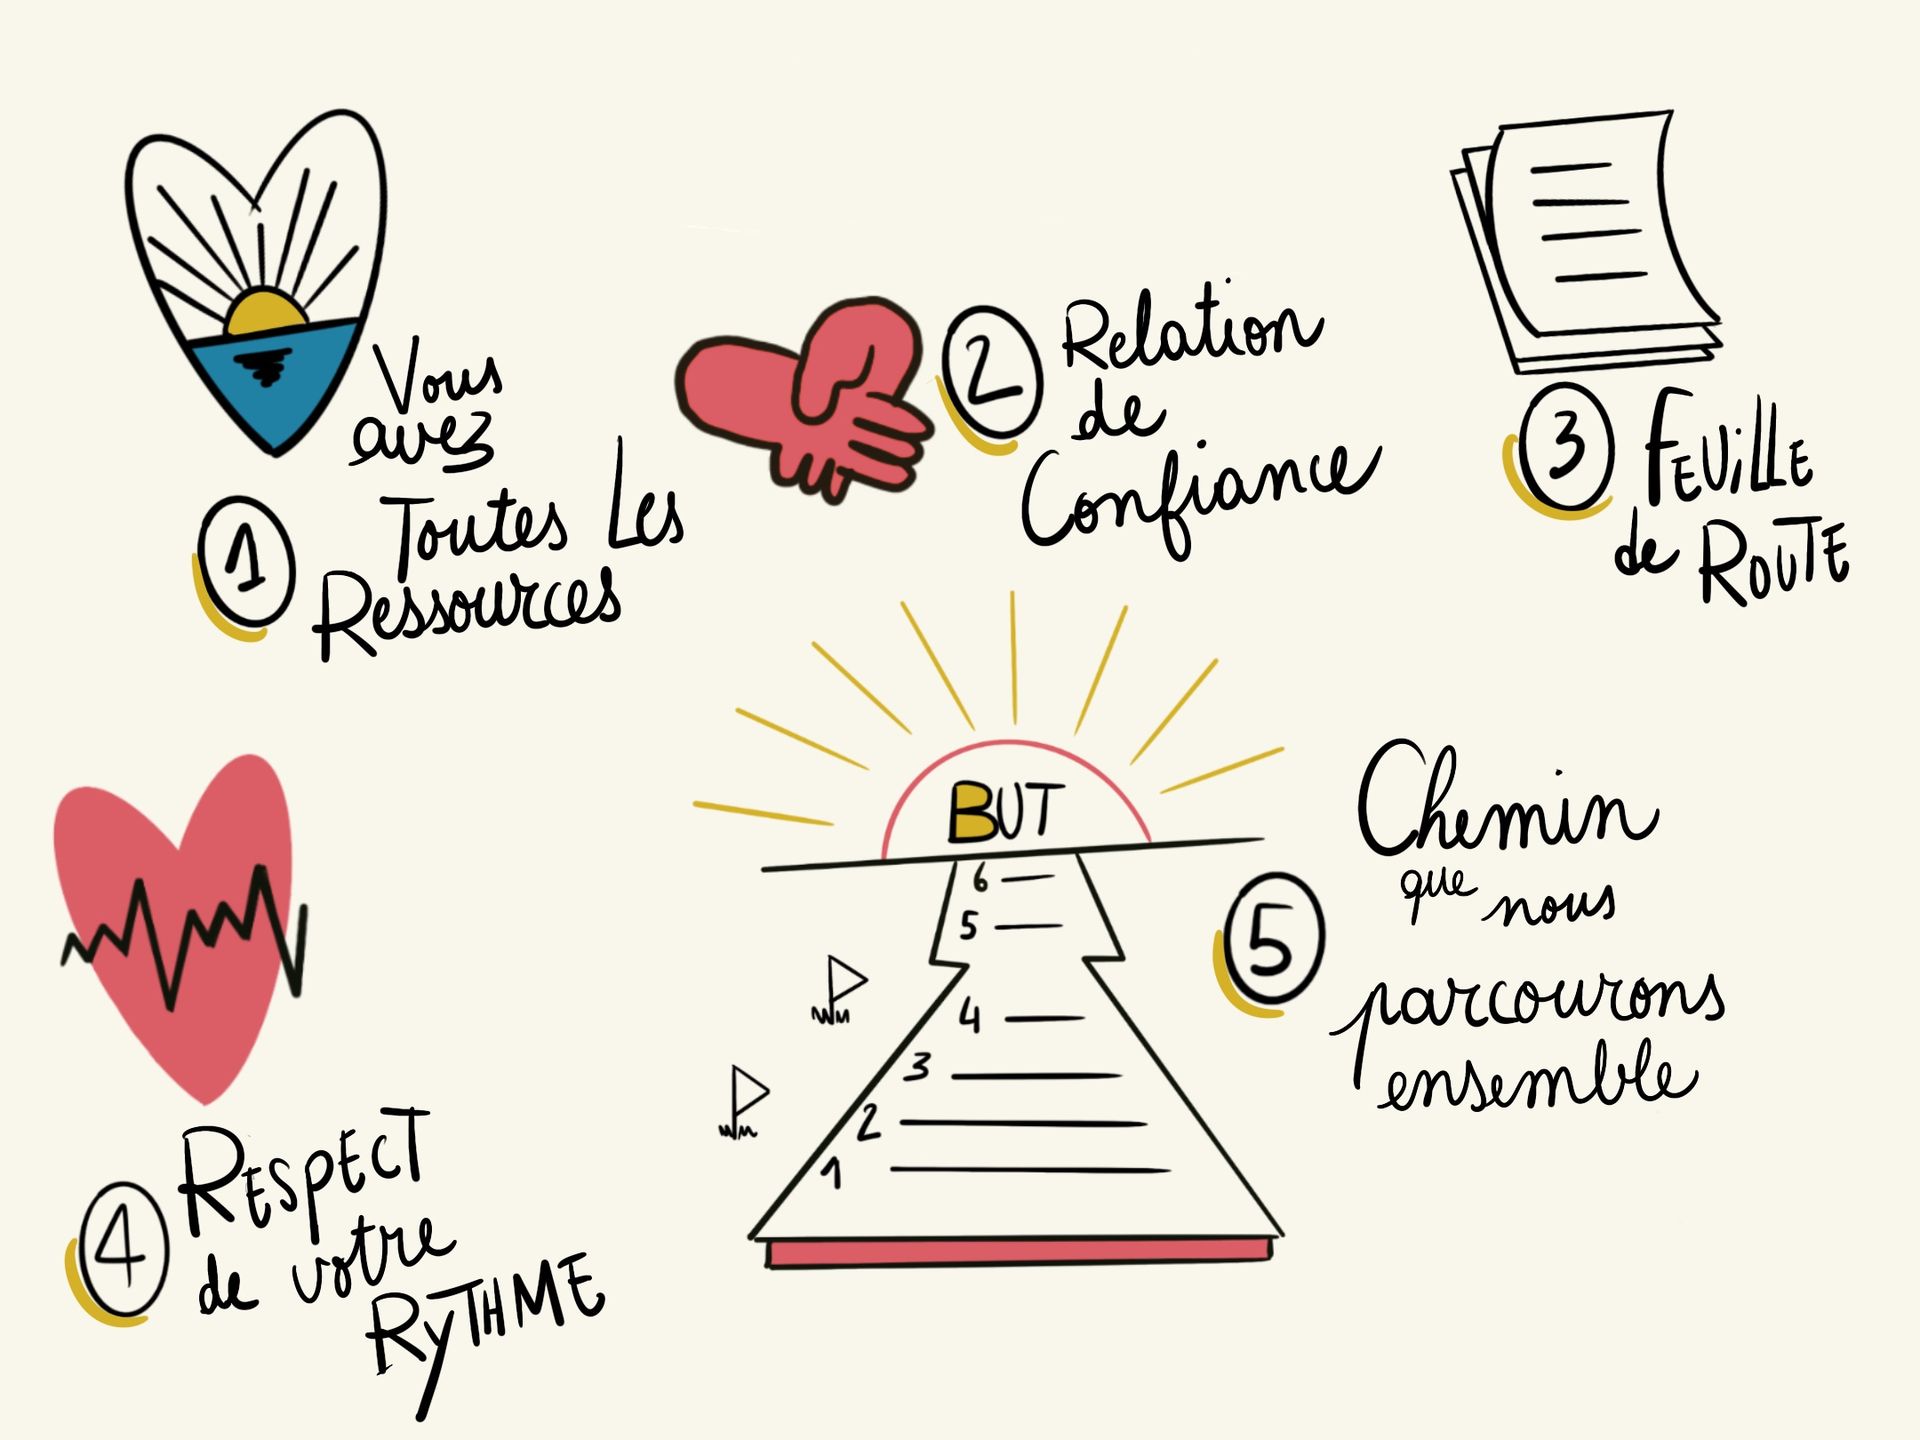 Vous
avez
1
Toutes Les
Ressources
2
Relation
de
Confiance
3
FEUiLLE
de ROUTE
4
RESPECT
de votre
RyTHME
BUT
6
5
4
3
2
1
5
Chemin
que nous
parcourons
ensemble